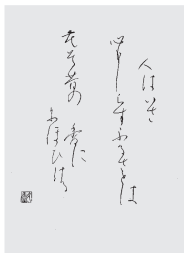 人はいさ
心もしらすふるさとは
花そ昔の香に
にほひける